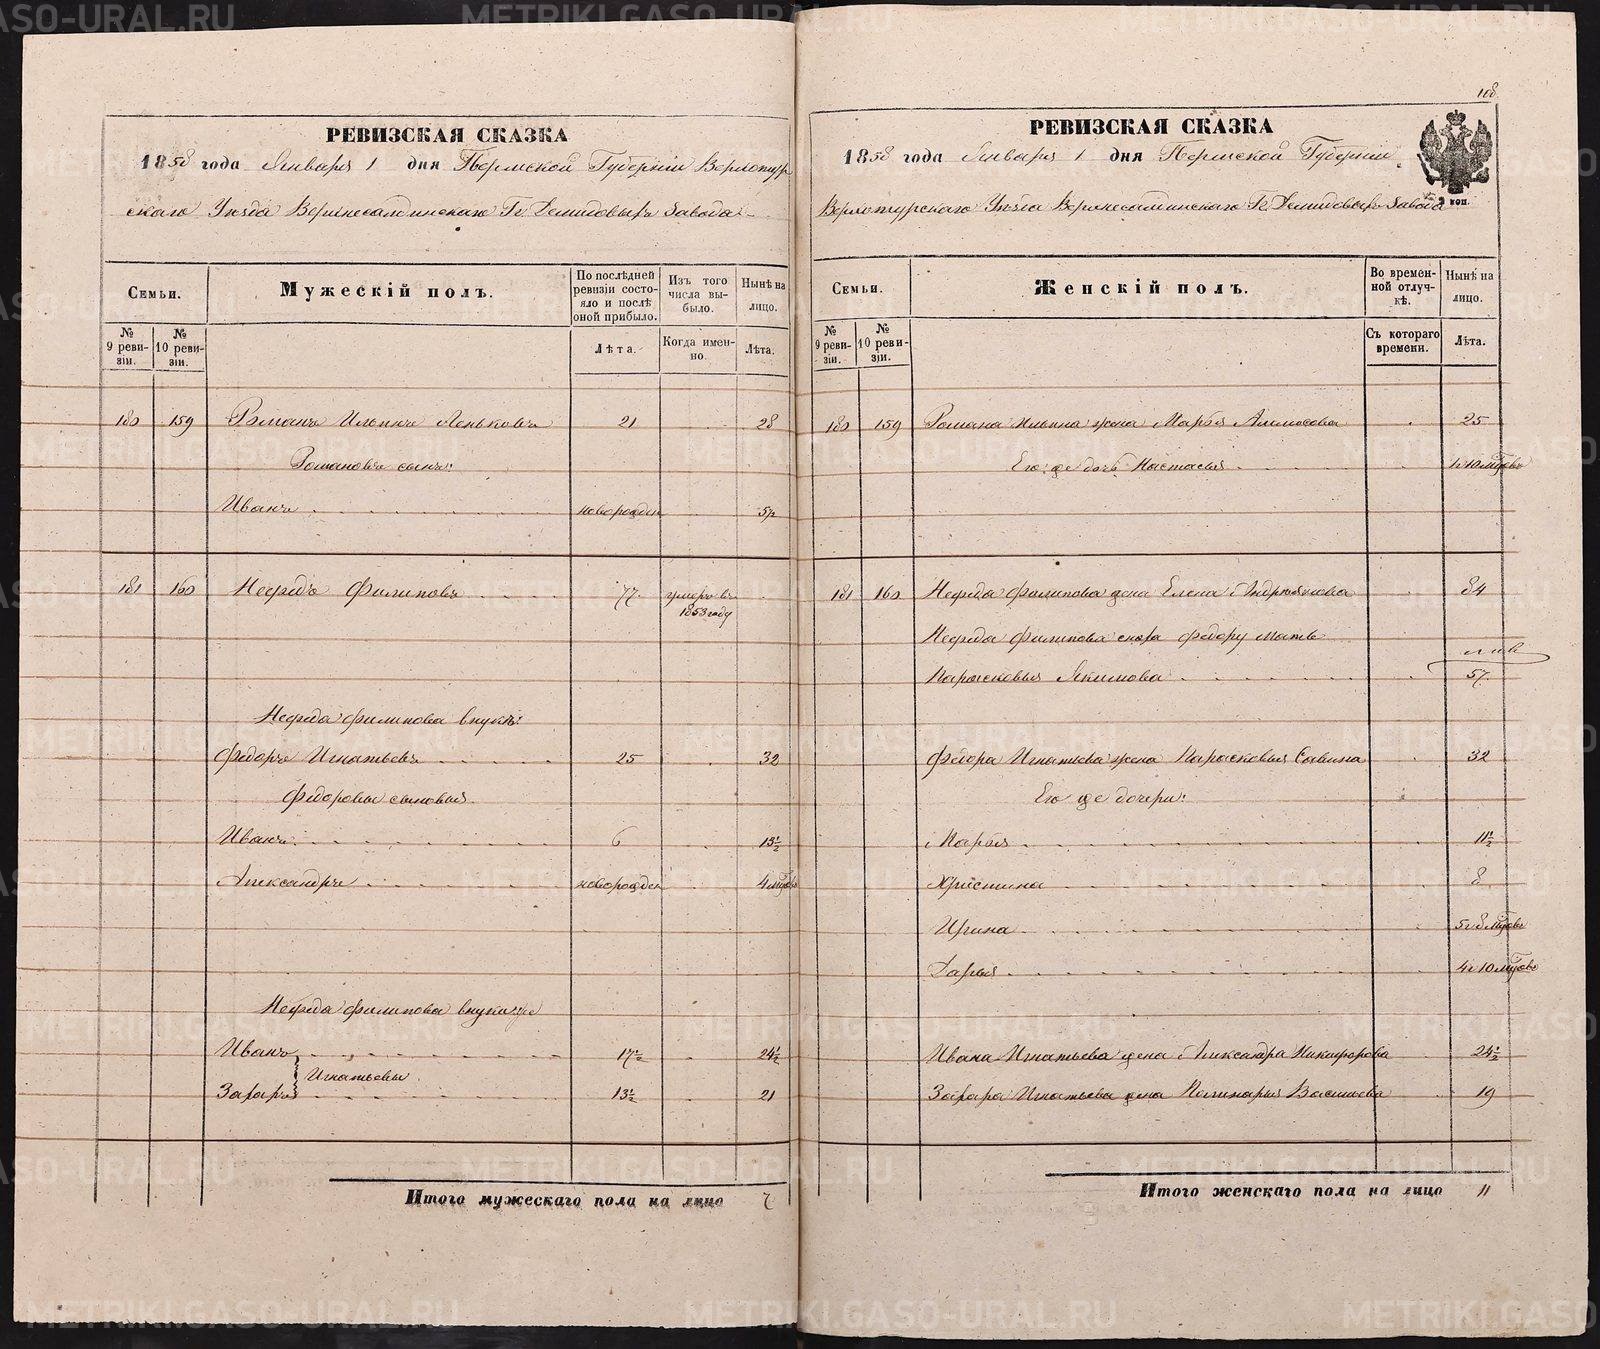 РЕВИЗСКАЯ СКАЗКА
1858 года Января 1 дня Пермской Губернии Верхотур
скаго Уезда Верхнесалдинскаго Гг. Демидовыхъ Завода
Семьи.
№ 9 ревизіи.
№ 10 ревизіи.
Мужескій полъ.
По послѣдней ревизіи состояло и послѣ оной прибыло.
Лѣта.
Изъ того числа выбыло.
Когда именно.
Нынѣ на лицо.
Лѣта.
180 159 Романъ Ильинъ Леньковъ 21 28
Романовъ сынъ:
Иванъ новорожден 5½
181 160 Нефедъ Филиповъ 77 умеръ въ 1853 году
Нефеда Филипова внукъ:
Федоръ Игнатьевъ 25 32
Федоровы сыновья.
Иванъ 6 13½
Александръ новорожден 4 мцовъ
Нефеда Филипова внуки
Иванъ 17½ 24½
Игнатьевы
Захаръ 13½ 21
Итого мужескаго пола на лицо 7
108.
РЕВИЗСКАЯ СКАЗКА
1858 года Января 1 дня Пермской Губернии
Верхотурскаго Уезда Верхнесалдинскаго Гг. Демидовыхъ Завода
коп.
Семьи.
№ 9 ревизіи.
№ 10 ревизіи.
Женскій полъ.
Во временной отлучкѣ.
Съ котораго времени.
Нынѣ на лицо.
Лѣта.
180 159 Романа Ильина жена Марья 25
Его же дочь Настасья 1 г 10 мцовъ
181 160 Нефеда Филипова жена Елена 84
Нефеда Филипова Федору мать
Парасковья Якимова 57
Федора Игнатьева жена Парасковья Савина 32
Его же дочери:
Марья 11½
Христина 8
Ирина 5 г 8 мцовъ
Дарья 4 г 10 мцовъ
Ивана Игнатьева жена Александра Никифорова 24½
Захара Игнатьева жена Васильева 19
Итого женскаго пола на лицо 11
METRIKI.GASO-URAL.RU